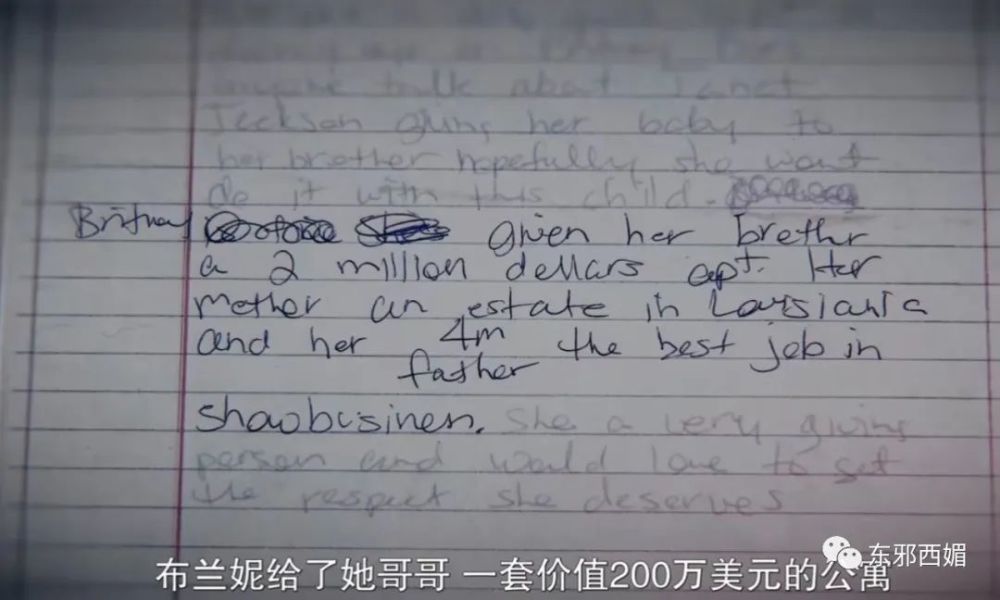 anyone talk about Janet
Jeckson giving her baby to
her brother hopefully she wont
do it with this child.
Britney given her brether
a 2 million dellars apt. Her
mether an estate in Louisiania
and her 4m the best job in
father
Showbusinen. She a very giving
person and would love to get
the respect she deserves
东邪西媚
布兰妮给了她哥哥 一套价值200万美元的公寓